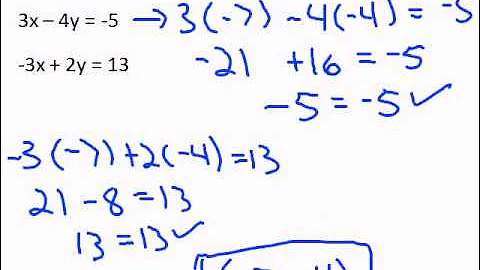 3x – 4y = -5 → 3(-7) - 4(-4) = -5
-21 +16 = -5
-5 = -5 ✓
-3x + 2y = 13
-3(-7) + 2(-4) = 13
21 - 8 = 13
13 = 13 ✓